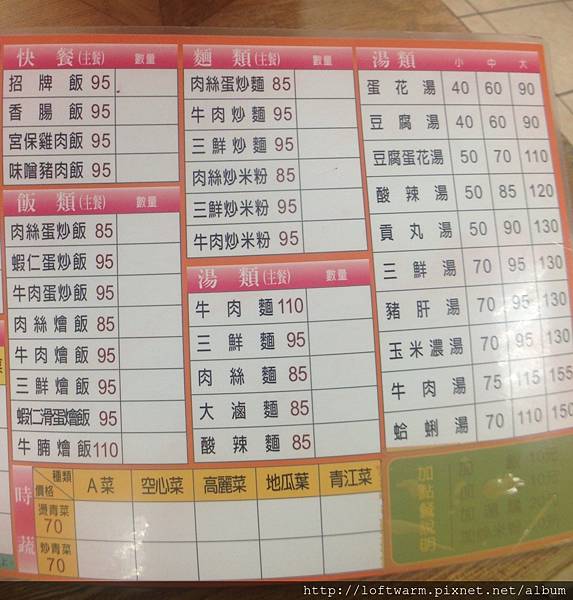 快餐(主餐) 數量
招牌飯 95
香腸飯 95
宮保雞肉飯 95
味噌豬肉飯 95
飯類(主餐) 數量
肉絲蛋炒飯 85
蝦仁蛋炒飯 95
牛肉蛋炒飯 95
肉絲燴飯 85
牛肉燴飯 95
三鮮燴飯 95
蝦仁滑蛋燴飯 95
牛腩燴飯 110
麵類(主餐) 數量
肉絲蛋炒麵 85
牛肉炒麵 95
三鮮炒麵 95
肉絲炒米粉 85
三鮮炒米粉 95
牛肉炒米粉 95
湯類(主餐) 數量
牛肉麵 110
三鮮麵 95
肉絲麵 85
大滷麵 85
酸辣麵 85
湯類 小 中 大
蛋花湯 40 60 90
豆腐湯 40 60 90
豆腐蛋花湯 50 70 110
酸辣湯 50 85 120
貢丸湯 50 90 130
三鮮湯 70 95 130
豬肝湯 70 95 130
玉米濃湯 70 95 130
牛肉湯 75 115 155
蛤蜊湯 70 110 150
時蔬
種類 價格 A菜 空心菜 高麗菜 地瓜葉 青江菜
燙青菜 70
炒青菜 70
加點餐說明
http://loftwarm.pixnet.net/album